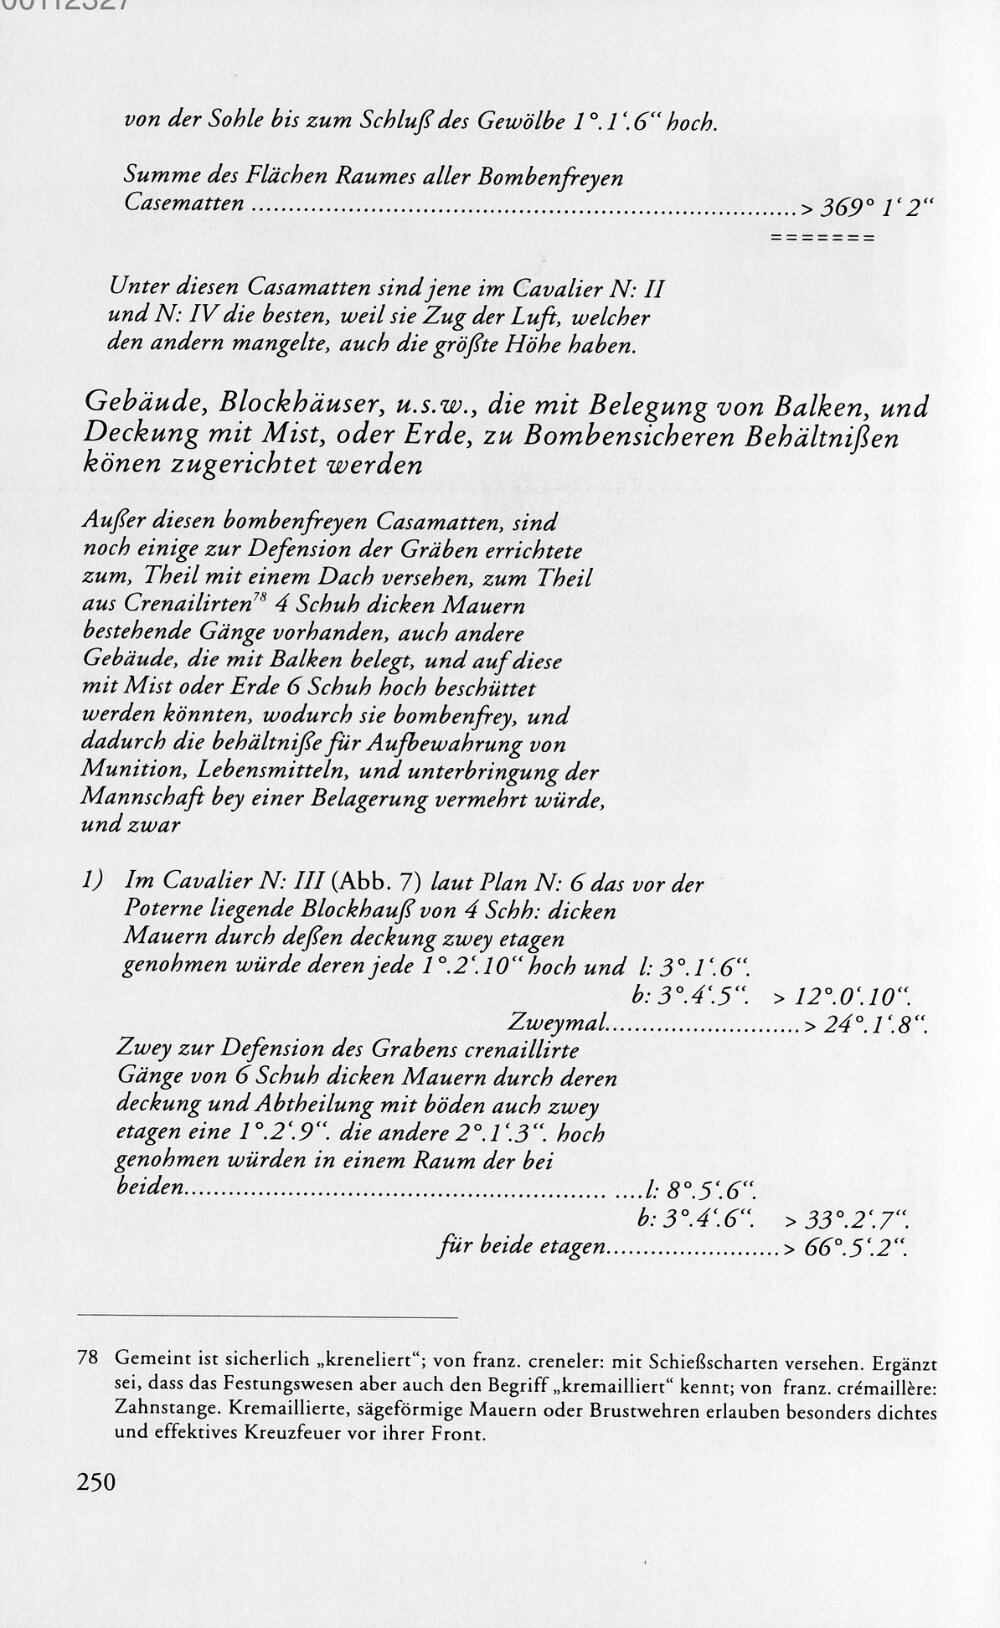 00112327
von der Sohle bis zum Schluß des Gewölbe 1°.1‘.6“ hoch.
Summe des Flächen Raumes aller Bombenfreyen
Casematten ..........................................................................> 369° 1‘ 2“
=======
Unter diesen Casamatten sind jene im Cavalier N: II
und N: IV die besten, weil sie Zug der Luft, welcher
den andern mangelte, auch die größte Höhe haben.
Gebäude, Blockhäuser, u.s.w., die mit Belegung von Balken, und
Deckung mit Mist, oder Erde, zu Bombensicheren Behältnißen
könen zugerichtet werden
Außer diesen bombenfreyen Casamatten, sind
noch einige zur Defension der Gräben errichtete
zum, Theil mit einem Dach versehen, zum Theil
aus Crenailirten78 4 Schuh dicken Mauern
bestehende Gänge vorhanden, auch andere
Gebäude, die mit Balken belegt, und auf diese
mit Mist oder Erde 6 Schuh hoch beschüttet
werden könnten, wodurch sie bombenfrey, und
dadurch die behältniße für Aufbewahrung von
Munition, Lebensmitteln, und unterbringung der
Mannschaft bey einer Belagerung vermehrt würde,
und zwar
1) Im Cavalier N: III (Abb. 7) laut Plan N: 6 das vor der
Poterne liegende Blockhauß von 4 Schh: dicken
Mauern durch deßen deckung zwey etagen
genohmen würde deren jede 1°.2‘.10“ hoch und l: 3°.1‘.6“.
b: 3°.4‘.5“. > 12°.0‘.10“.
Zweymal...........................> 24°.1‘.8“.
Zwey zur Defension des Grabens crenaillirte
Gänge von 6 Schuh dicken Mauern durch deren
deckung und Abtheilung mit böden auch zwey
etagen eine 1°.2‘.9“. die andere 2°.1‘.3“. hoch
genohmen würden in einem Raum der bei
beiden......................................................... ....l: 8°.5‘.6“.
b: 3°.4‘.6“. > 33°.2‘.7“.
für beide etagen........................> 66°.5‘.2“.
78 Gemeint ist sicherlich „kreneliert“; von franz. creneler: mit Schießscharten versehen. Ergänzt
sei, dass das Festungswesen aber auch den Begriff „kremailliert“ kennt; von franz. crémaillère:
Zahnstange. Kremaillierte, sägeförmige Mauern oder Brustwehren erlauben besonders dichtes
und effektives Kreuzfeuer vor ihrer Front.
250